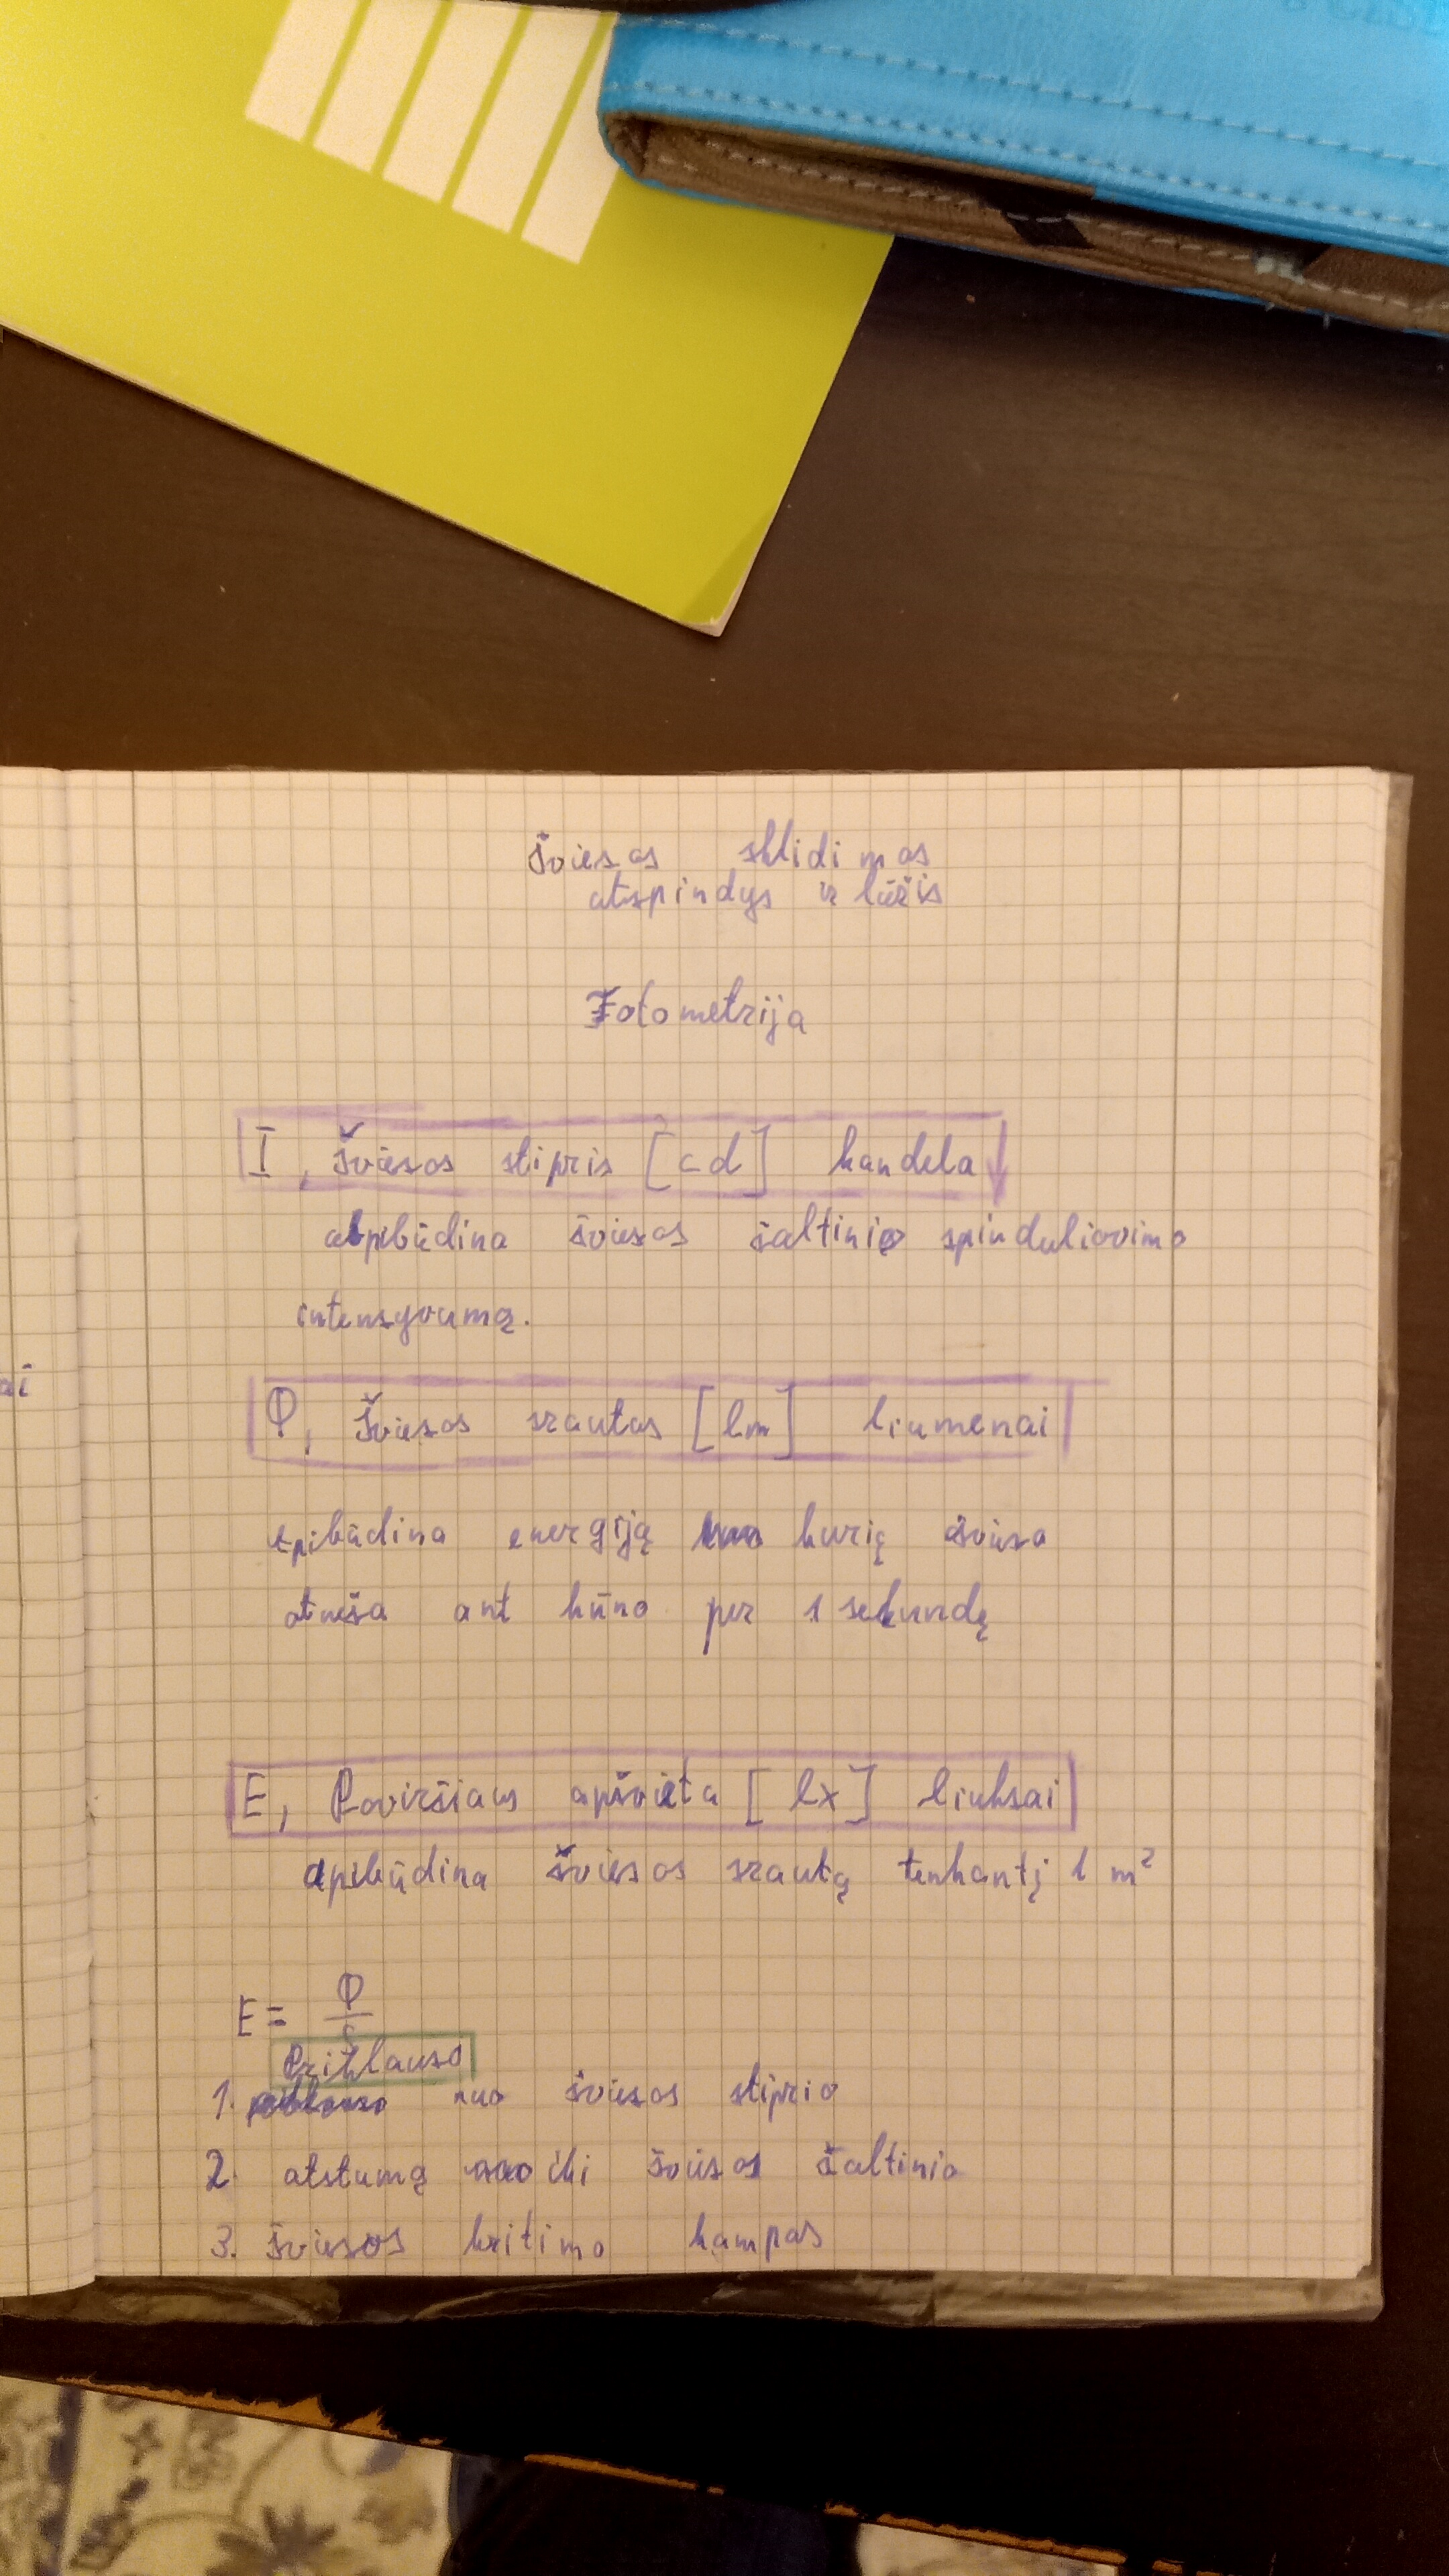 Šviesos sklidimas
atspindys ir lūžis
Fotometrija
I, Šviesos stipris [cd] kandela
apibūdina šviesos šaltinio spinduliavimo
intensyvumą.
Φ, Šviesos srautas [lm] liumenai
apibūdina energiją kurią šviesa
atneša ant kūno per 1 sekundę
E, Paviršiaus apšvieta [lx] liuksai
apibūdina šviesos srautą tenkantį 1 m²
E = Φ/S
Priklauso
1. nuo šviesos stiprio
2. atstumą iki šviesos šaltinio
3. šviesos kritimo kampas